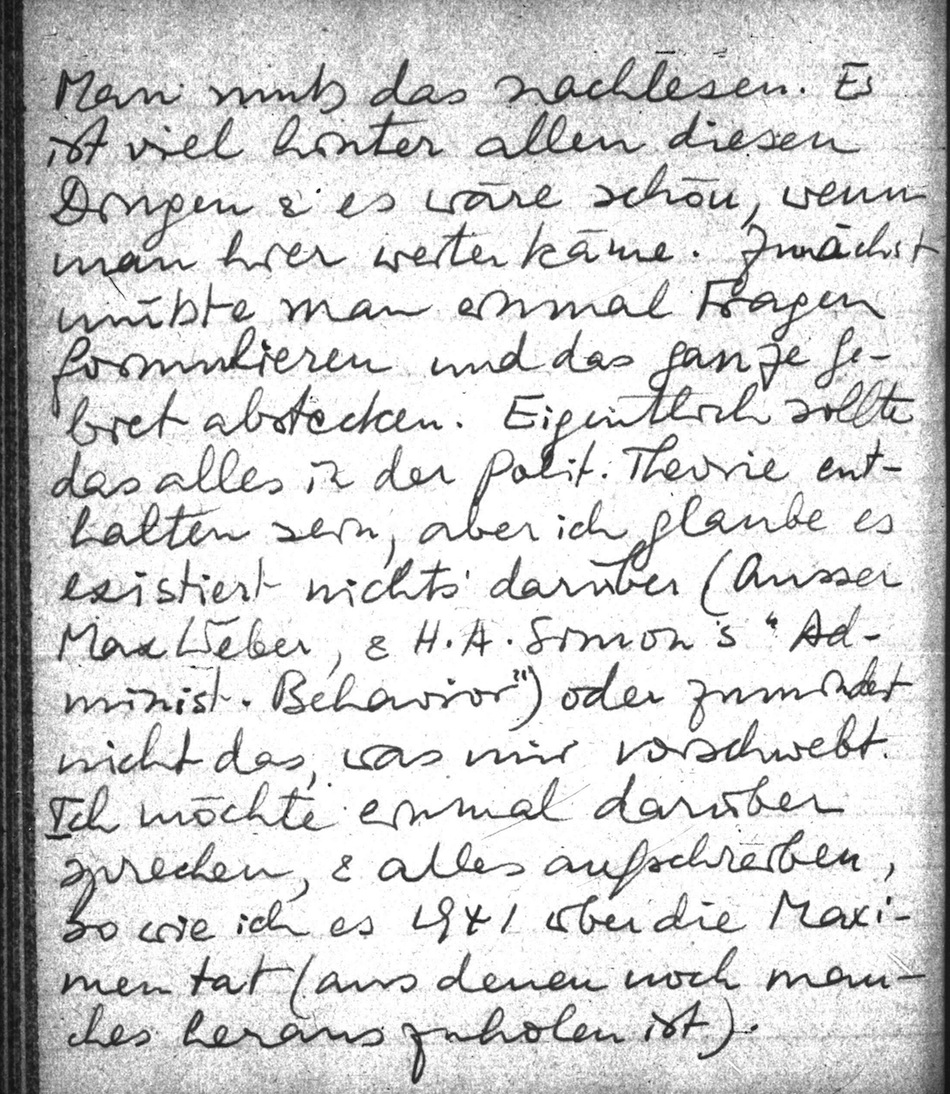 Man muß das nachlesen. Es
ist viel hinter allen diesen
Dingen & es wäre schön, wenn
man hier weiter käme. Zunächst
müßte man einmal Fragen
formulieren und das ganze Ge-
biet abstecken. Eigentlich sollte
das alles in der polit. Theorie ent-
halten sein, aber ich glaube es
existiert nichts darüber (Ausser
Max Weber, & H. A. Simon's "Ad-
minist. Behavior") oder zumindest
nicht das, was mir vorschwebt.
Ich möchte einmal darüber
sprechen, & alles aufschreiben,
so wie ich es 1941 über die Maxi-
men tat (aus denen noch man-
ches herauszuholen ist).